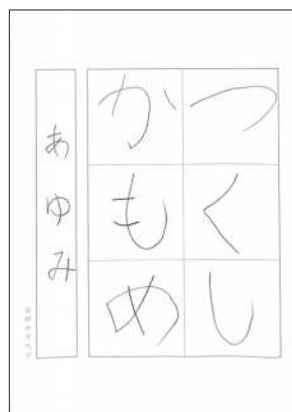 つくし
かもめ
あゆみ